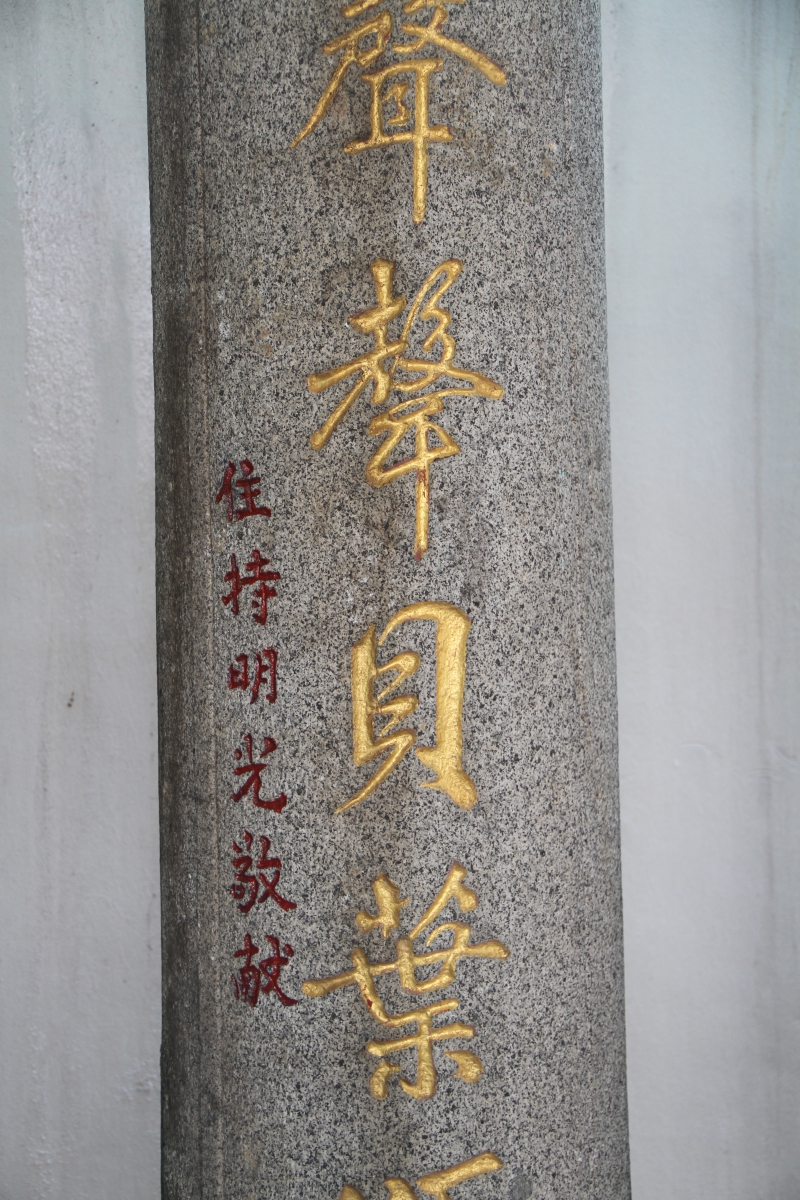 聲聲貝葉
住持明光敬献